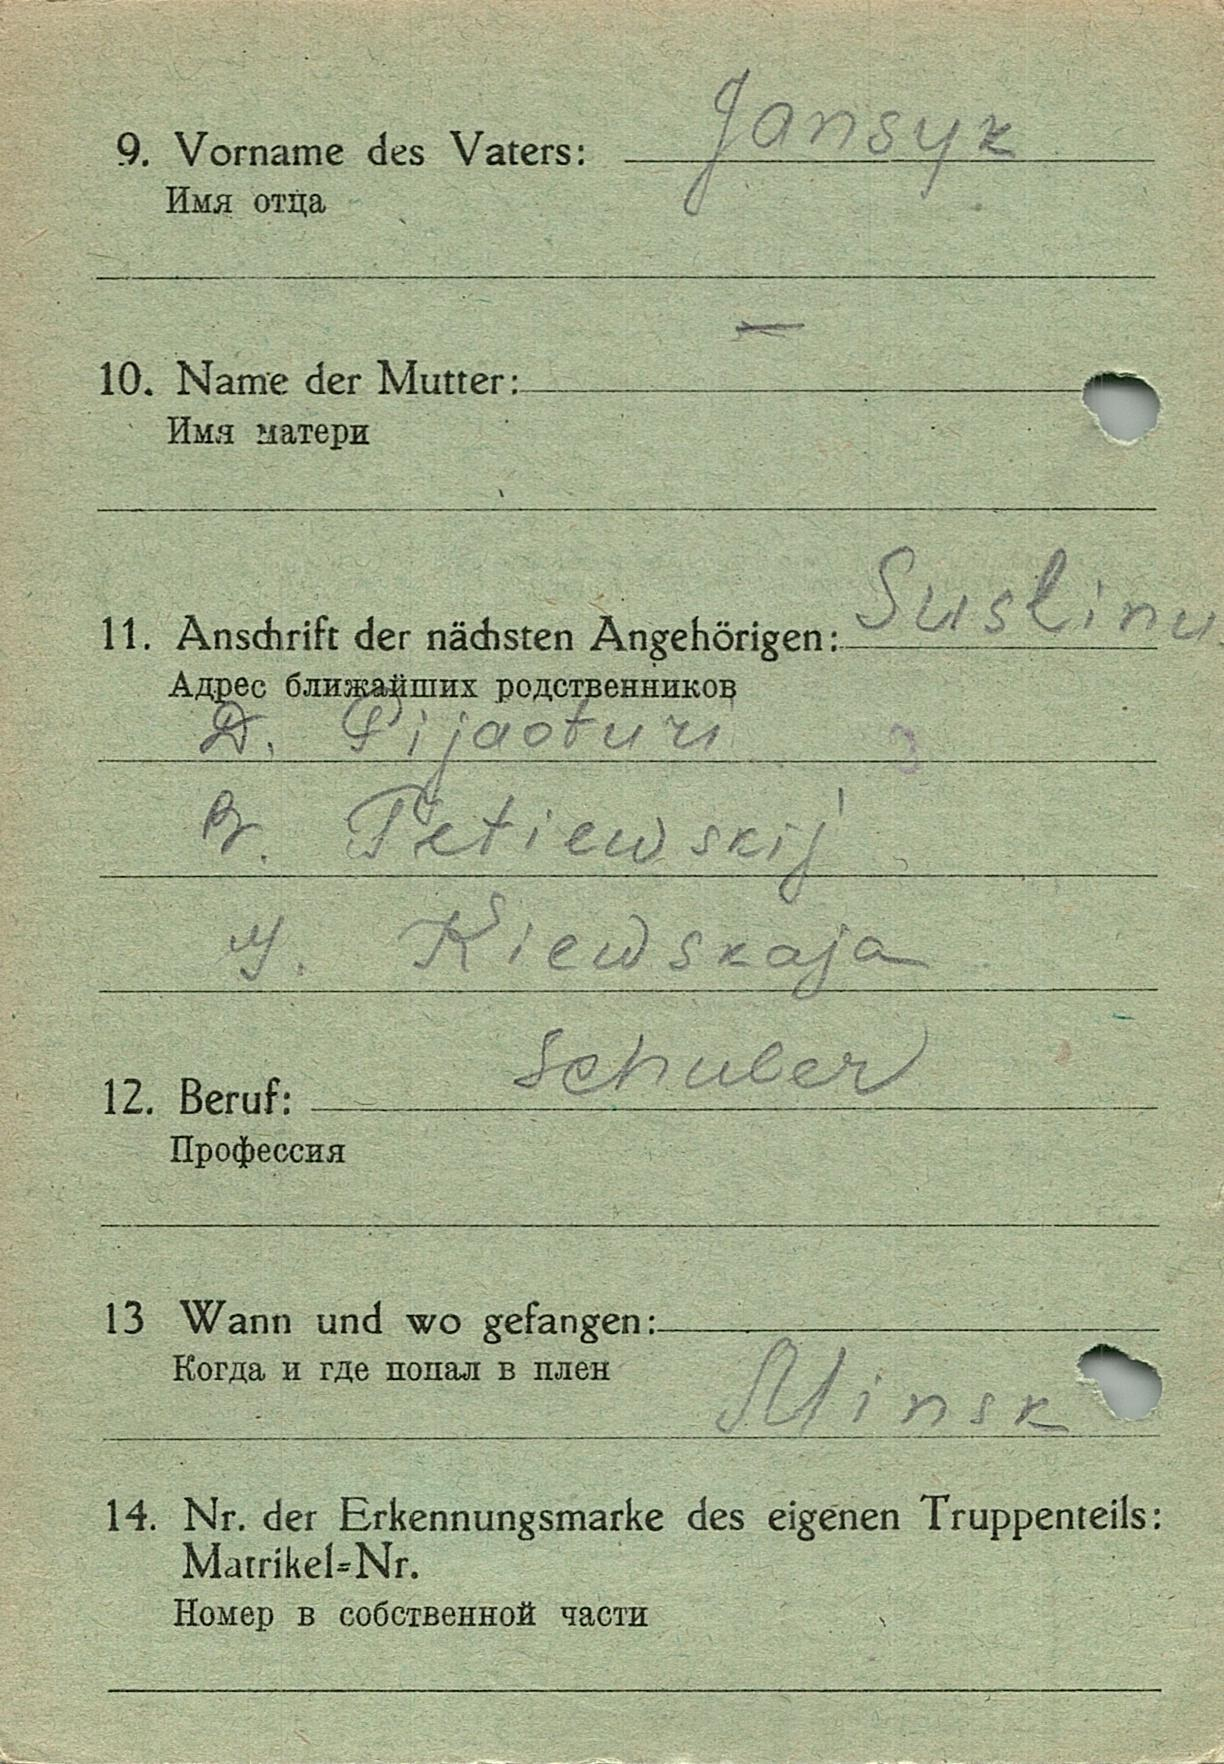 9. Vorname des Vaters: Jansyk
Имя отца
—
10. Name der Mutter:
Имя матери
Suslinu
11. Anschrift der nächsten Angehörigen:
Адрес ближайших родственников
D.
R. Petiewskij
Kiewskaja
Schuler
12. Beruf:
Профессия
13 Wann und wo gefangen:
Когда и где попал в плен
Minsk
14. Nr. der Erkennungsmarke des eigenen Truppenteils:
Matrikel-Nr.
Номер в собственной части